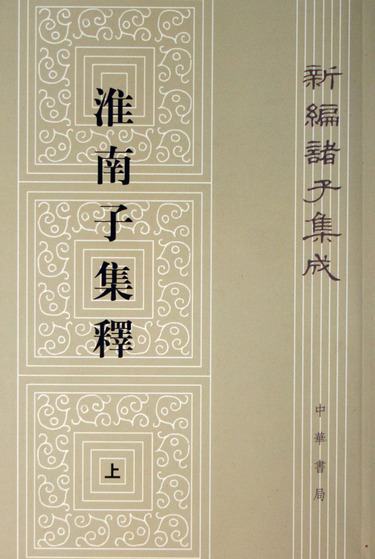 新編諸子集成
淮南子集釋
上
中華書局